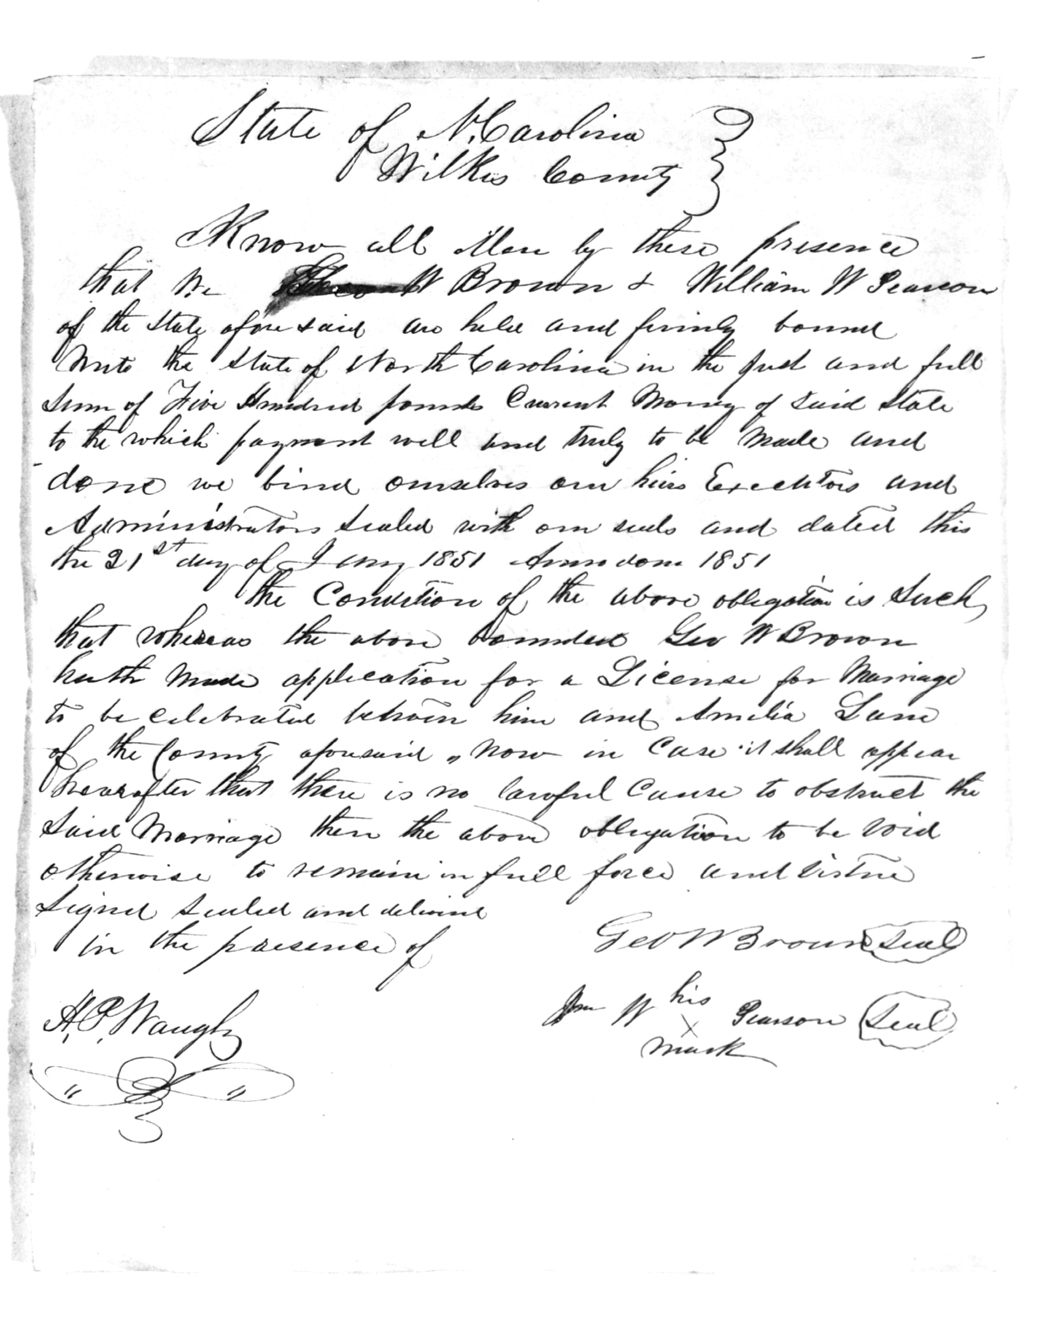 State of N. Carolina
Wilkes County
Know all Men by these presence
that we W Brown & William W Pearson
of the State afore said are held and firmly bound
unto the State of North Carolina in the Just and full
Sum of Five Hundred pounds Current Money of Said State
to the which payment well and truly to be Made and
done we bind ourselves our heirs Executors and
Administrators Sealed with our seals and dated this
the 21st day of Jany 1851 Annodom 1851
the Condition of the above obligation is Such,
that whereas the above bounden Geo W Brown
hath Made application for a License for Marriage
to be celebrated between him and Amelia Lane
of the County aforesaid, Now in Case it shall appear
hereafter that there is no lawful Cause to obstruct the
Said Marriage then the above obligation to be void
otherwise to remain in full force and virtue
Signed Sealed and delivered
in the presence of
Geo W Brown Seal
Wm W his Pearson Seal
X
mark
H. P. Waugh